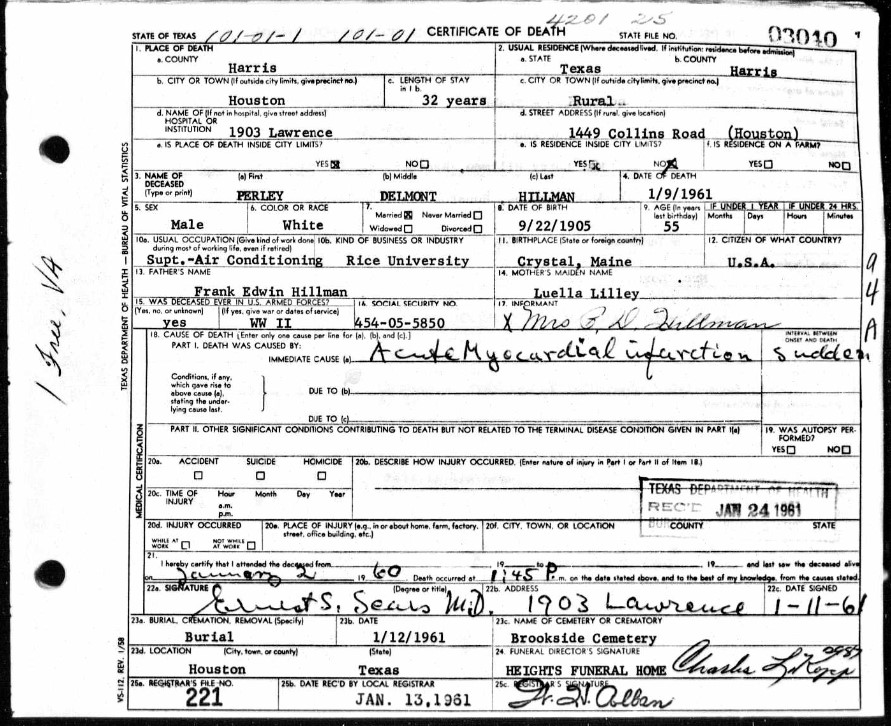 4201 25
STATE OF TEXAS 101-01-1 101-01 CERTIFICATE OF DEATH STATE FILE NO. 03040
1. PLACE OF DEATH
a. COUNTY
Harris
2. USUAL RESIDENCE (Where deceased lived. If institution: residence before admission)
a. STATE b. COUNTY
Texas Harris
b. CITY OR TOWN (If outside city limits, give precinct no.) c. LENGTH OF STAY in 1 b.
Houston 32 years
c. CITY OR TOWN (If outside city limits, give precinct no.)
Rural
d. NAME OF (If not in hospital, give street address)
HOSPITAL OR
INSTITUTION 1903 Lawrence
d. STREET ADDRESS (If rural, give location)
1449 Collins Road (Houston)
e. IS PLACE OF DEATH INSIDE CITY LIMITS?
YES NO
e. IS RESIDENCE INSIDE CITY LIMITS? f. IS RESIDENCE ON A FARM?
YES NO YES NO
3. NAME OF DECEASED (Type or print) (a) First (b) Middle (c) Last 4. DATE OF DEATH
PERLEY DELMONT HILLMAN 1/9/1961
5. SEX 6. COLOR OR RACE 7. Married Never Married Widowed Divorced 8. DATE OF BIRTH 9. AGE (In years last birthday) IF UNDER 1 YEAR IF UNDER 24 HRS.
Months Days Hours Minutes
Male White 9/22/1905 55
10a. USUAL OCCUPATION (Give kind of work done during most of working life, even if retired) 10b. KIND OF BUSINESS OR INDUSTRY 11. BIRTHPLACE (State or foreign country) 12. CITIZEN OF WHAT COUNTRY?
Supt.-Air Conditioning Rice University Crystal, Maine U.S.A.
13. FATHER'S NAME 14. MOTHER'S MAIDEN NAME
Frank Edwin Hillman Luella Lilley
15. WAS DECEASED EVER IN U.S. ARMED FORCES? 16. SOCIAL SECURITY NO. 17. INFORMANT
(Yes, no, or unknown) (If yes, give war or dates of service)
yes WW II 454-05-5850 X Mrs P. D. Hillman
18. CAUSE OF DEATH (Enter only one cause per line for (a), (b), and (c).) INTERVAL BETWEEN ONSET AND DEATH
PART I. DEATH WAS CAUSED BY:
IMMEDIATE CAUSE (a) Acute Myocardial infarction Sudden
Conditions, if any, which gave rise to above cause (a), stating the underlying cause last.
DUE TO (b)
DUE TO (c)
PART II. OTHER SIGNIFICANT CONDITIONS CONTRIBUTING TO DEATH BUT NOT RELATED TO THE TERMINAL DISEASE CONDITION GIVEN IN PART I(a) 19. WAS AUTOPSY PERFORMED?
YES NO
20a. ACCIDENT SUICIDE HOMICIDE 20b. DESCRIBE HOW INJURY OCCURRED. (Enter nature of injury in Part I or Part II of Item 18.)
20c. TIME OF INJURY Hour Month Day Year
a.m.
p.m.
TEXAS DEPARTMENT OF HEALTH
REC'D JAN 24 1961
20d. INJURY OCCURRED 20e. PLACE OF INJURY (e.g., in or about home, farm, factory, street, office building, etc.) 20f. CITY, TOWN, OR LOCATION COUNTY STATE
WHILE AT WORK NOT WHILE AT WORK
21. I hereby certify that I attended the deceased from 19 to 19 and last saw the deceased alive
on January 2 19 60 Death occurred at 1:45 P. m. on the date stated above, and to the best of my knowledge, from the causes stated.
22a. SIGNATURE (Degree or title) 22b. ADDRESS 22c. DATE SIGNED
Ernest S. Sears M.D. 1903 Lawrence 1-11-61
23a. BURIAL, CREMATION, REMOVAL (Specify) 23b. DATE 23c. NAME OF CEMETERY OR CREMATORY
Burial 1/12/1961 Brookside Cemetery
23d. LOCATION (City, town, or county) (State) 24. FUNERAL DIRECTOR'S SIGNATURE
Houston Texas HEIGHTS FUNERAL HOME Charles
25a. REGISTRAR'S FILE NO. 25b. DATE REC'D BY LOCAL REGISTRAR 25c. REGISTRAR'S SIGNATURE
221 JAN. 13, 1961
TEXAS DEPARTMENT OF HEALTH — BUREAU OF VITAL STATISTICS
MEDICAL CERTIFICATION
VS-112, REV. 1/58
1 Free, VA
9
4
A